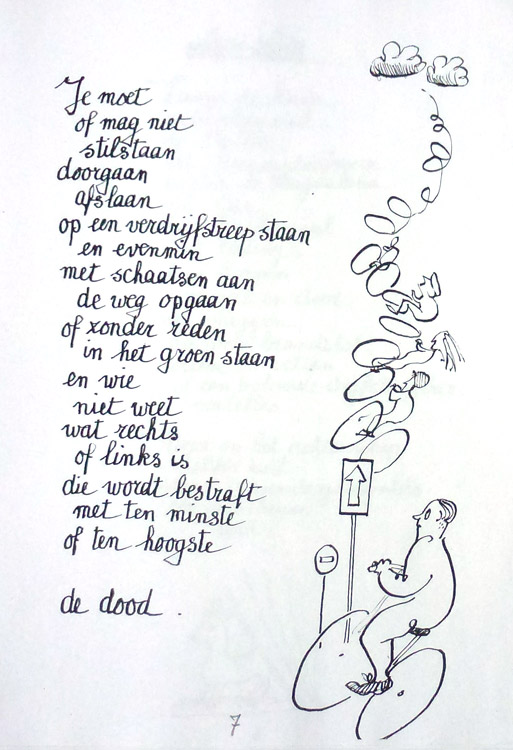 Je moet
of mag niet
stilstaan
doorgaan
afslaan
op een verdrijfstreep staan
en evenmin
met schaatsen aan
de weg opgaan
of zonder reden
in het groen staan
en wie
niet weet
wat rechts
of links is
die wordt bestraft
met ten minste
of ten hoogste
de dood.
7